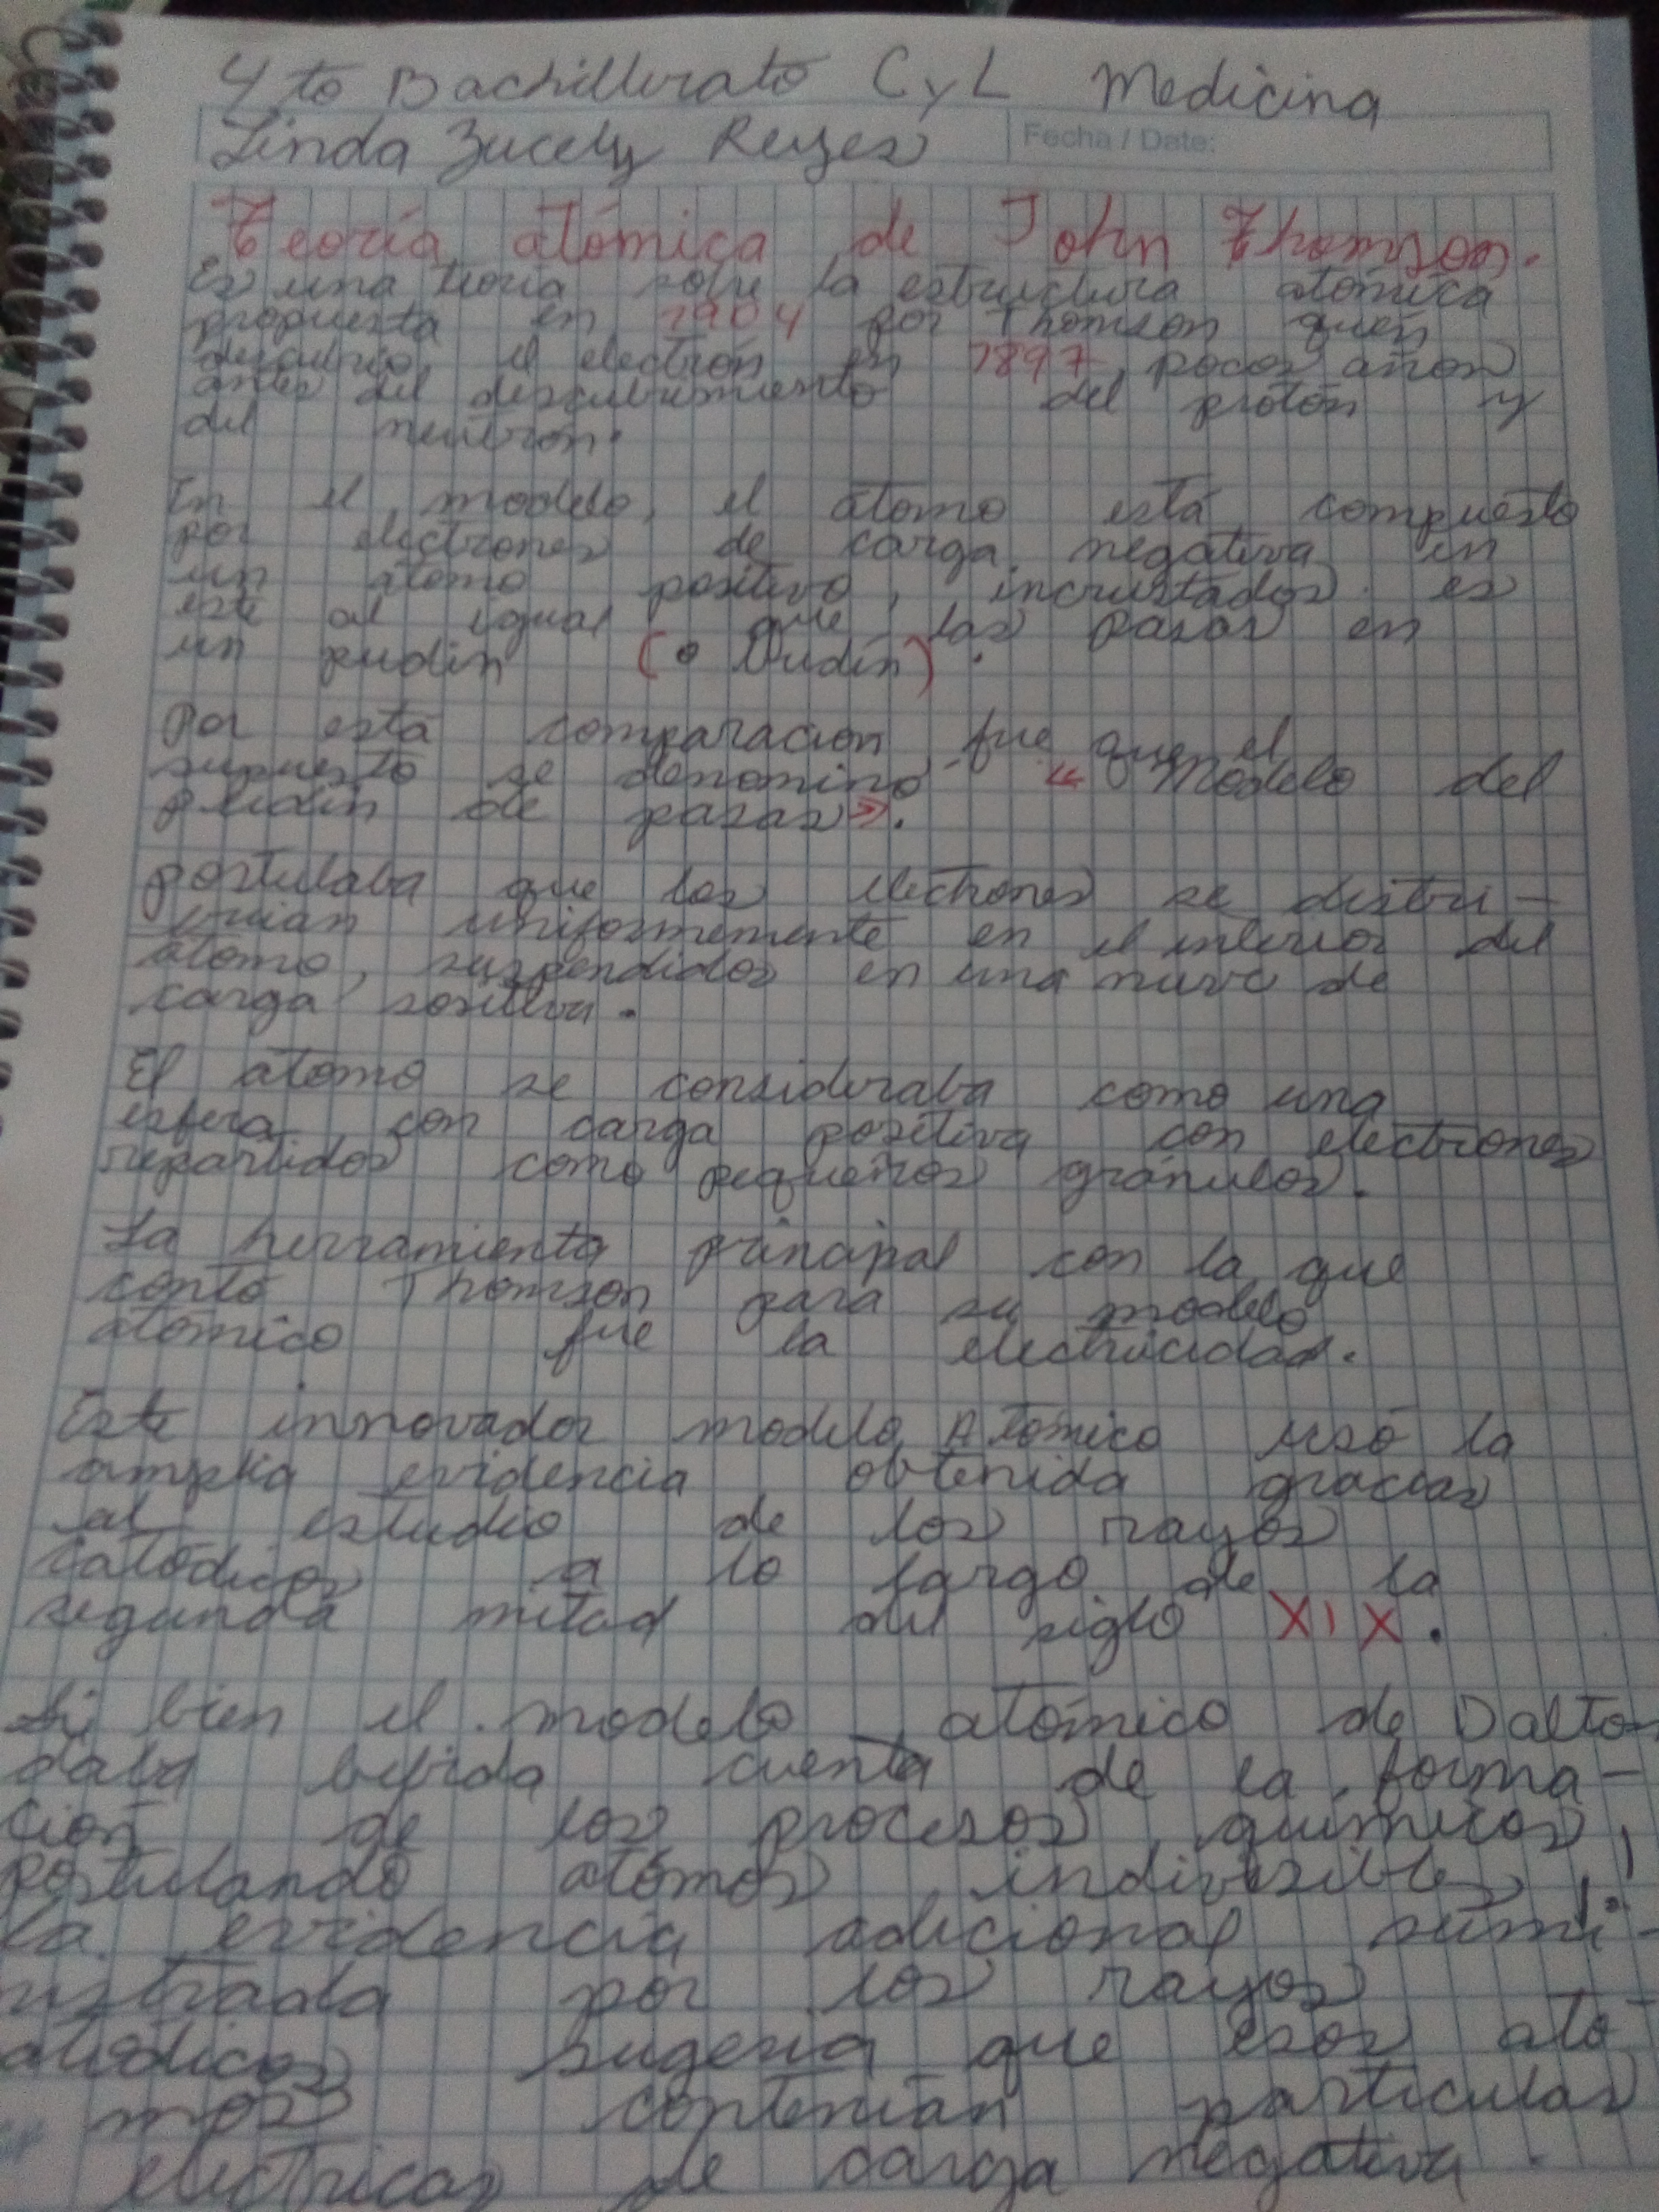 4to Bachillerato CyL Medicina
Linda Zucely Reyes
Fecha / Date:
Teoría atómica de John Thomson.
Es una teoría sobre la estructura atómica
propuesta en 1904 por Thomson quen
descubrio el electrón en 1897, pocos años
antes del descubrimiento del protón y
del neutrón.
En el modelo, el átomo está compuesto
por electrones de carga negativa en
un átomo positivo, incrustados es
este al igual que las pasas en
un pudin (o Budín).
Por esta comparación fue que el
supuesto se denominó « Modelo del
pudin de pasas».
postulaba que los electrones se distri-
buian uniformemente en el interior del
átomo, suspendidos en una nuve de
carga positiva.
El átomo se consideraba como una
esfera con carga positiva con electrones
repartidos como pequeños gránulos.
La herramienta principal con la que
contó Thomson para su modelo
atómico fue la electricidad.
Este innovador modelo Atómico usó la
amplia evidencia obtenida gracias
al estudio de los rayos
catódicos a lo largo de la
segunda mitad del siglo XIX.
Si bien el modelo atómico de Dalton
daba debida cuenta de la forma-
ción de los procesos químicos,
postulando átomos indivisibles,
la evidencia adicional sumi-
nistrada por los rayos
catódicos sugería que esos áto-
mos contenían partículas
electricas de carga negativa.